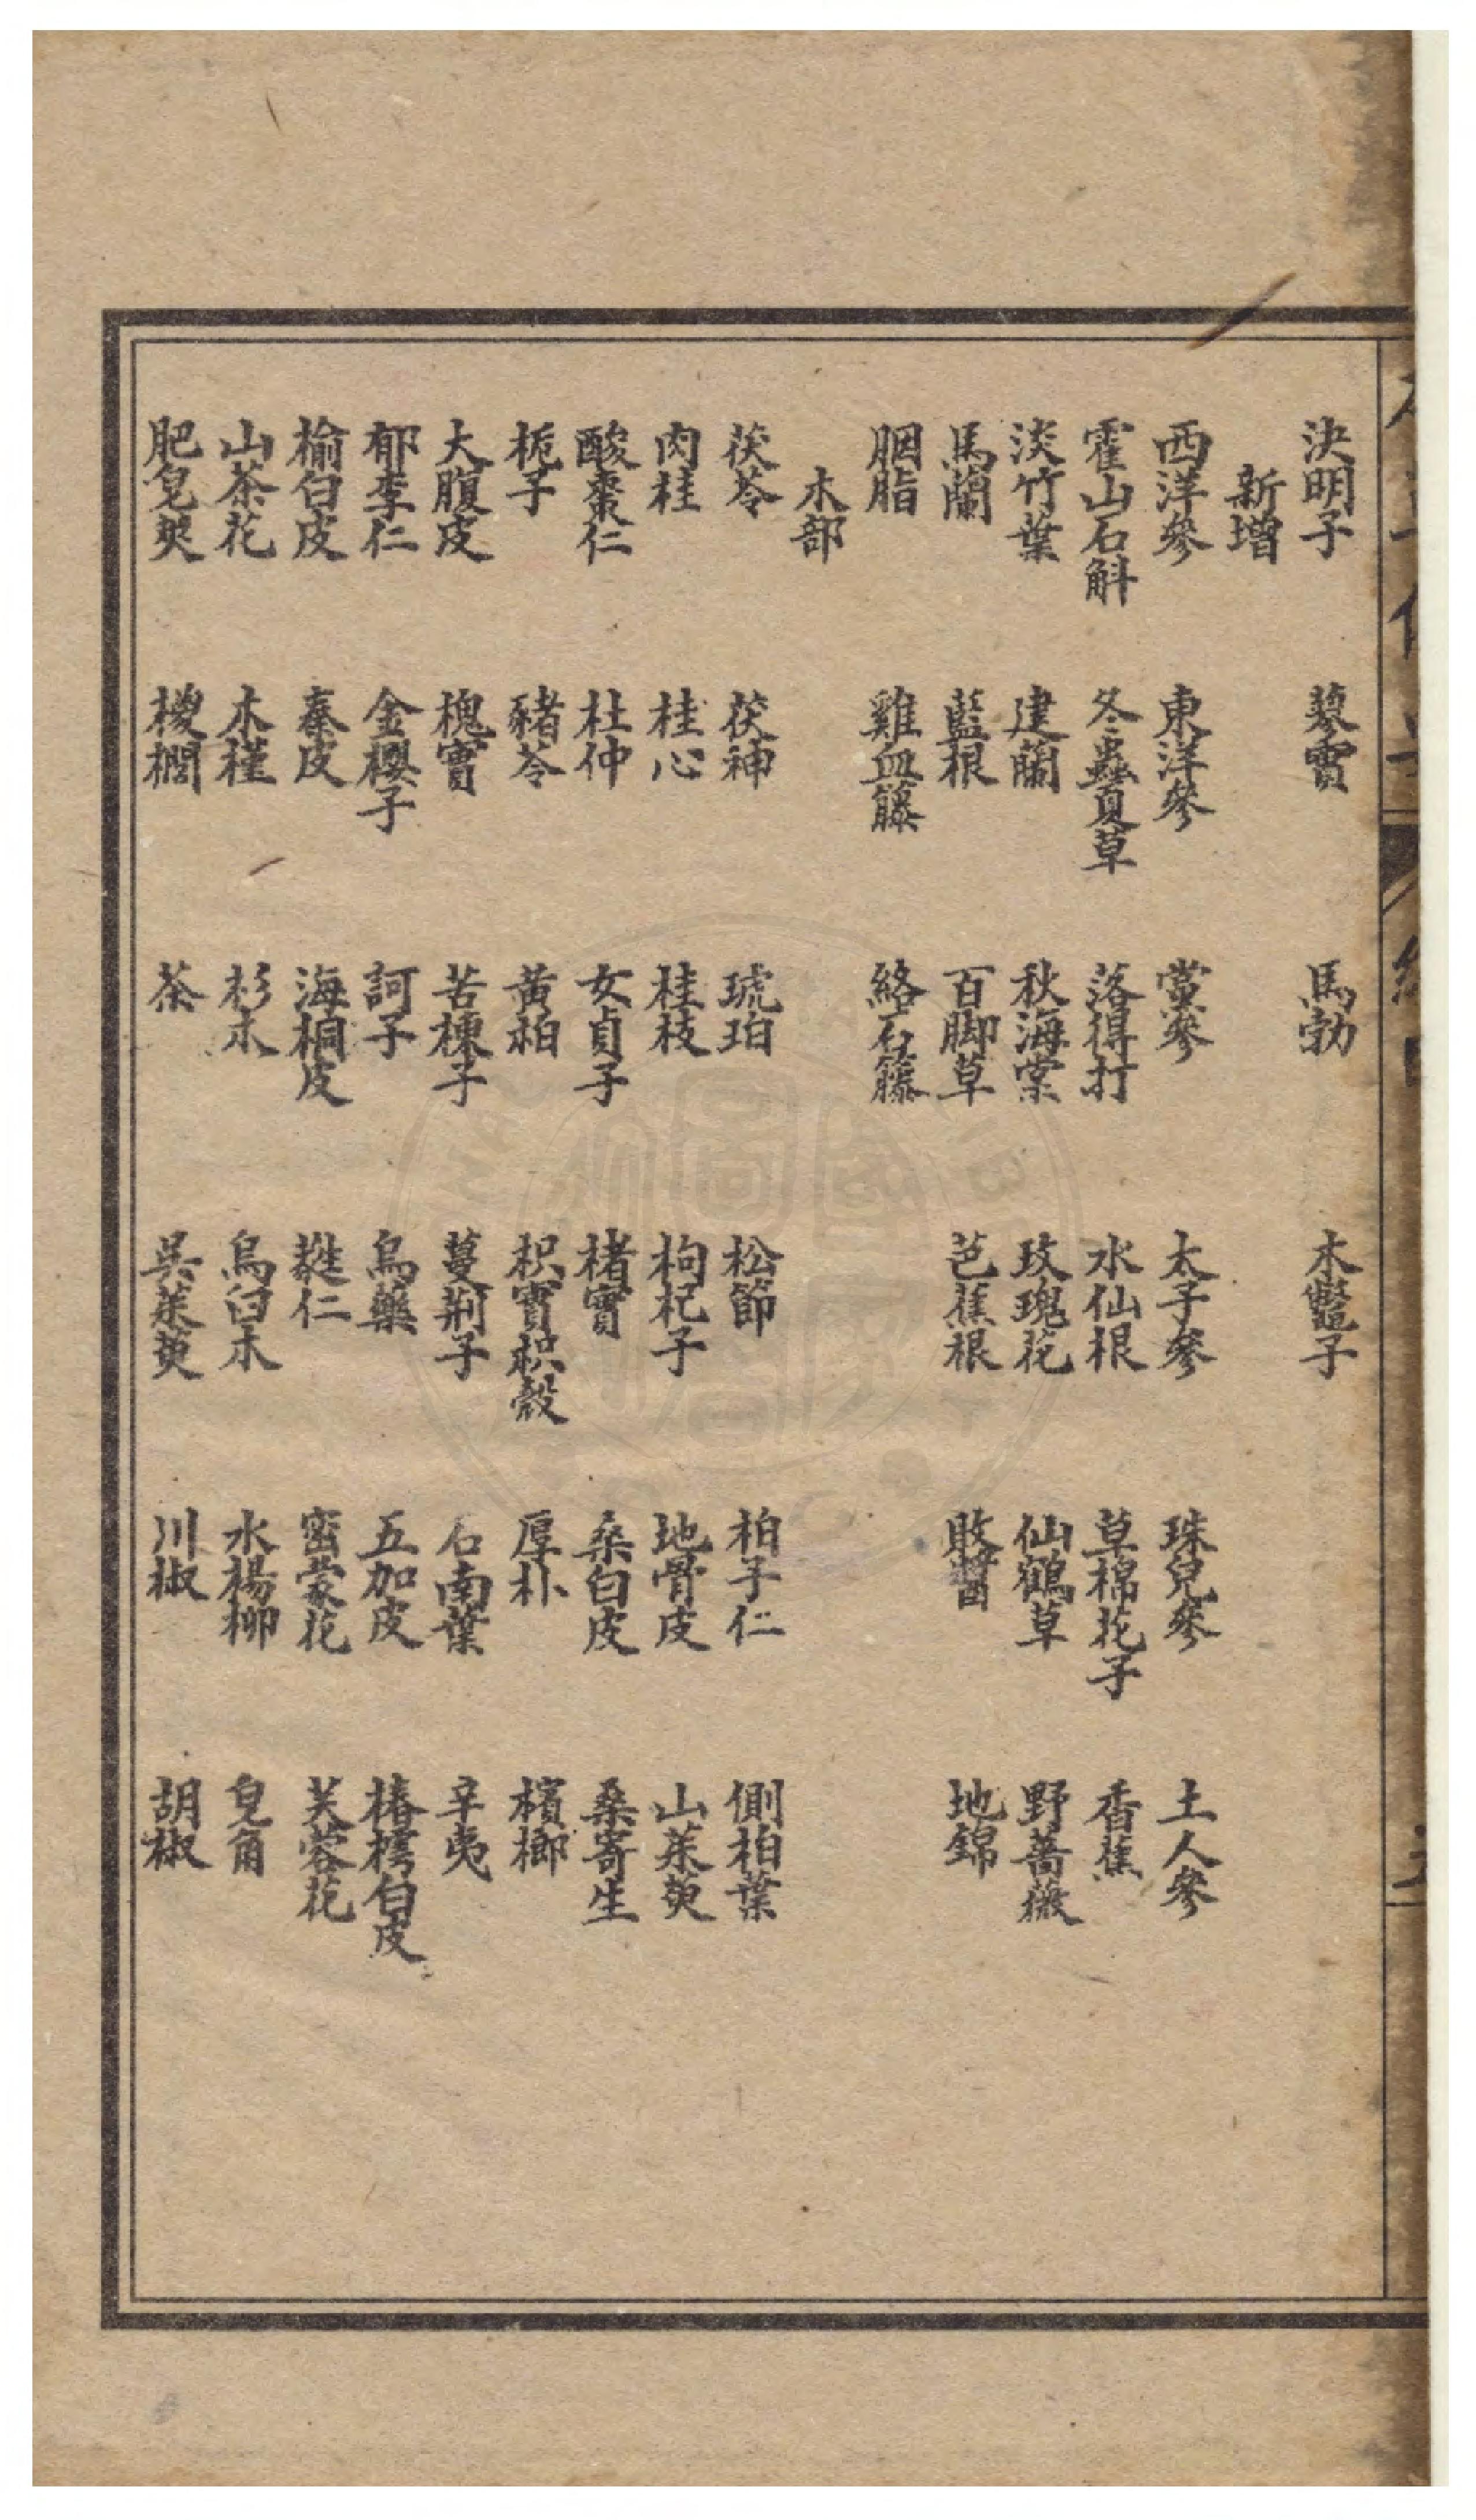 決明子 蓼實 馬勃 木鼈子
新增
西洋參 東洋參 黨參 太子參 珠兒參 土人參
霍山石斛 冬蟲夏草 落得打 水仙根 草棉花子 香蕉
淡竹葉 建蘭 秋海棠 玫瑰花 仙鶴草 野薔薇
馬蘭 藍根 百腳草 芭蕉根 敗醬 地錦
胭脂 雞血籐 絡石籐
木部
茯苓 茯神 琥珀 松節 柏子仁 側柏葉
肉桂 桂心 桂枝 枸杞子 地骨皮 山茱萸
酸棗仁 杜仲 女貞子 楮實 桑白皮 桑寄生
栀子 豬苓 黃柏 枳實枳殼 厚朴 檳榔
大腹皮 槐實 苦楝子 蔓荊子 石南葉 辛夷
郁李仁 金櫻子 訶子 烏藥 五加皮 椿樗白皮
榆白皮 秦皮 海桐皮 蕤仁 密蒙花 芙蓉花
山茶花 木槿 杉木 烏臼木 水楊柳 皂角
肥皂莢 椶櫚 茶 吳茱萸 川椒 胡椒